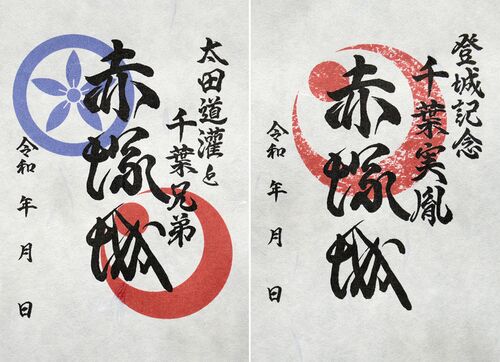 太田道灌と
千葉兄弟
赤塚城
令和 年 月 日
登城記念
千葉実胤
赤塚城
令和 年 月 日